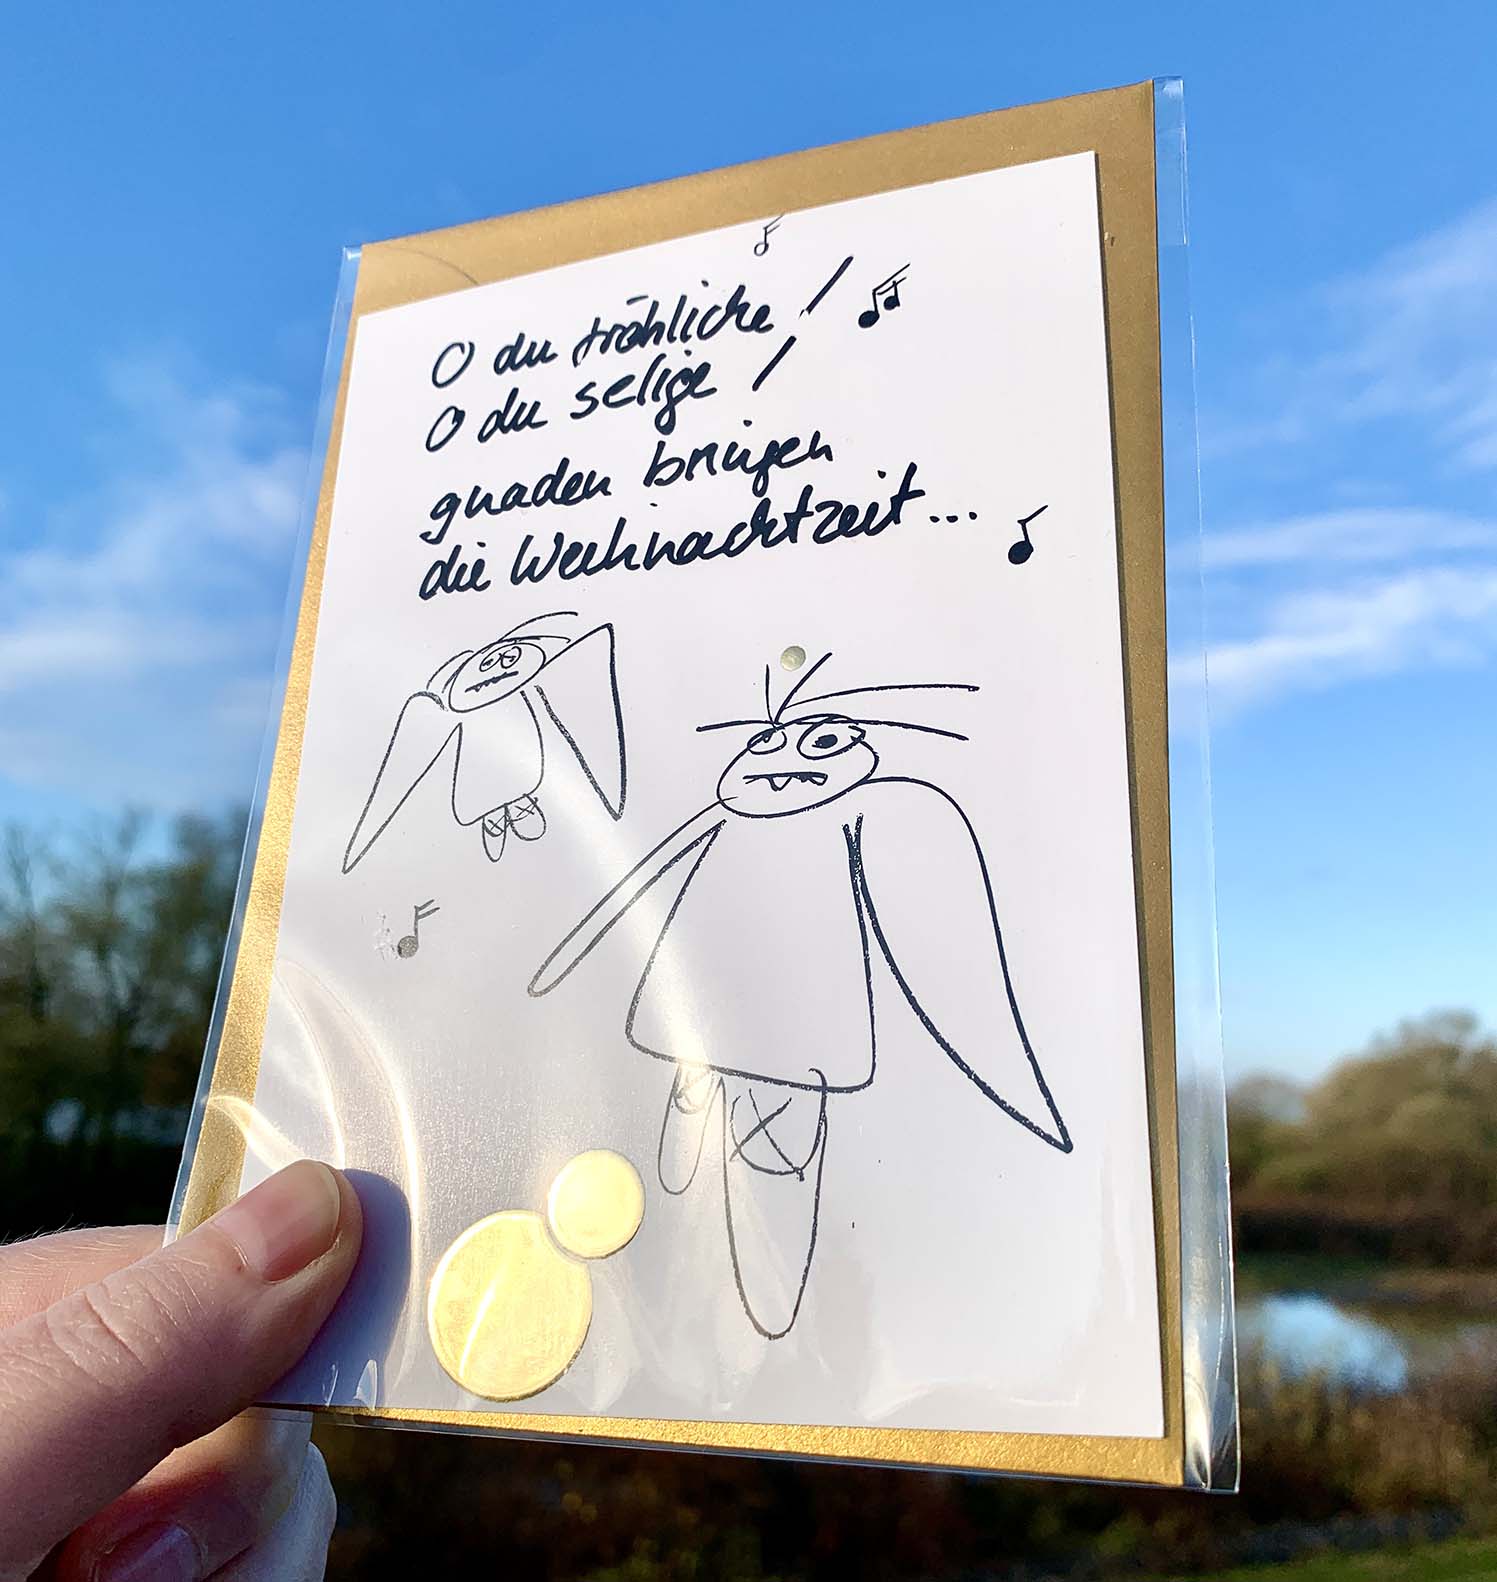 O du fröhliche!
O du selige!
gnaden bringen
die Weihnachtzeit...